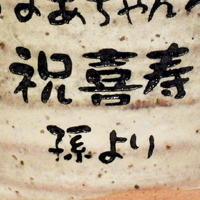 ばあちゃんへ
祝喜寿
孫より